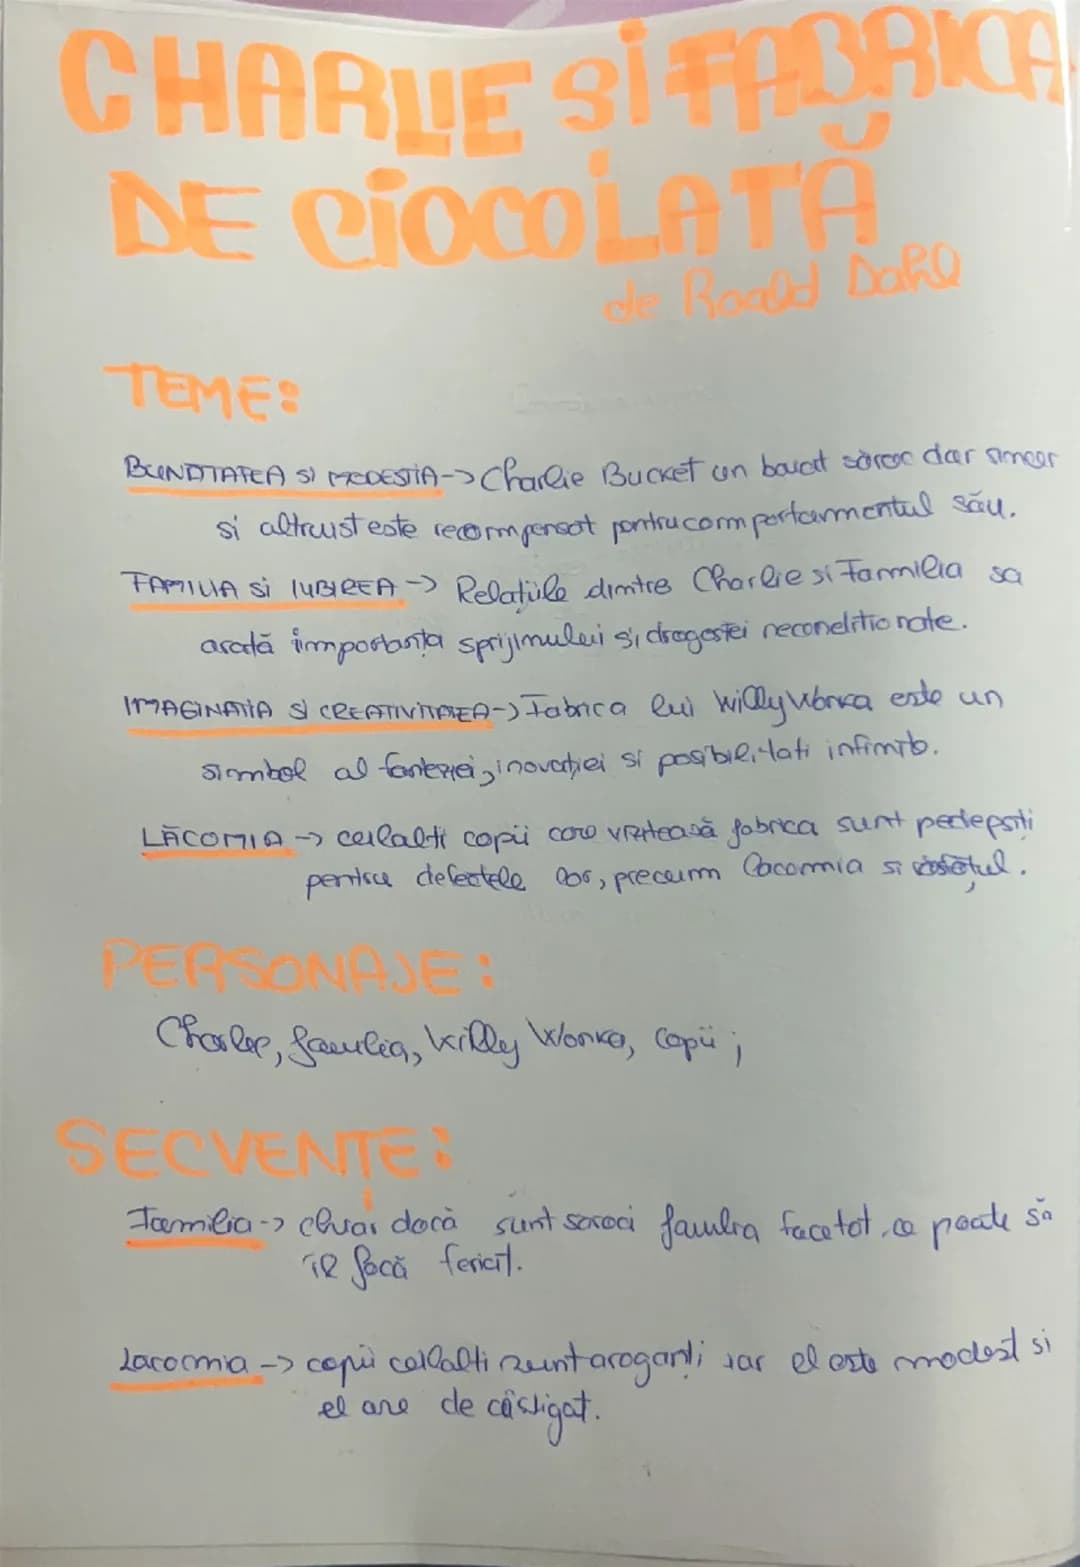 CHARLIE Si FABRICA
DE CiOCOLATĂ
de Roald Dahl
TEME:
BUNĂTATEA SI MODESTIA -> Charlie Bucket un baiat sărac dar sincer
si altruist este recompensat pentru comportamentul său.
FAMILIA Si IUBIREA -> Relațiile dintre Charlie si Familia sa
arată importanța sprijinului și dragostei neconditionate.
IMAGINATIA SI CREATIVITATEA -> Fabrica lui Willy Wonka este un
simbol al fanteziei, inovației si posibilitati infinite.
LĂCOMIA -> ceilalti copii care vizitează fabrica sunt pedepsiti
pentru defectele lor, precum lacomia si răsfățul.
PERSONAJE:
Charlie, familia, Willy Wonka, copii ;
SECVENȚE:
Familia -> chiar dacă sunt saraci familia face tot ce poate să
îl facă fericit.
Lacomia -> copii ceilalti sunt aroganți iar el este modest si
el are de câștigat.